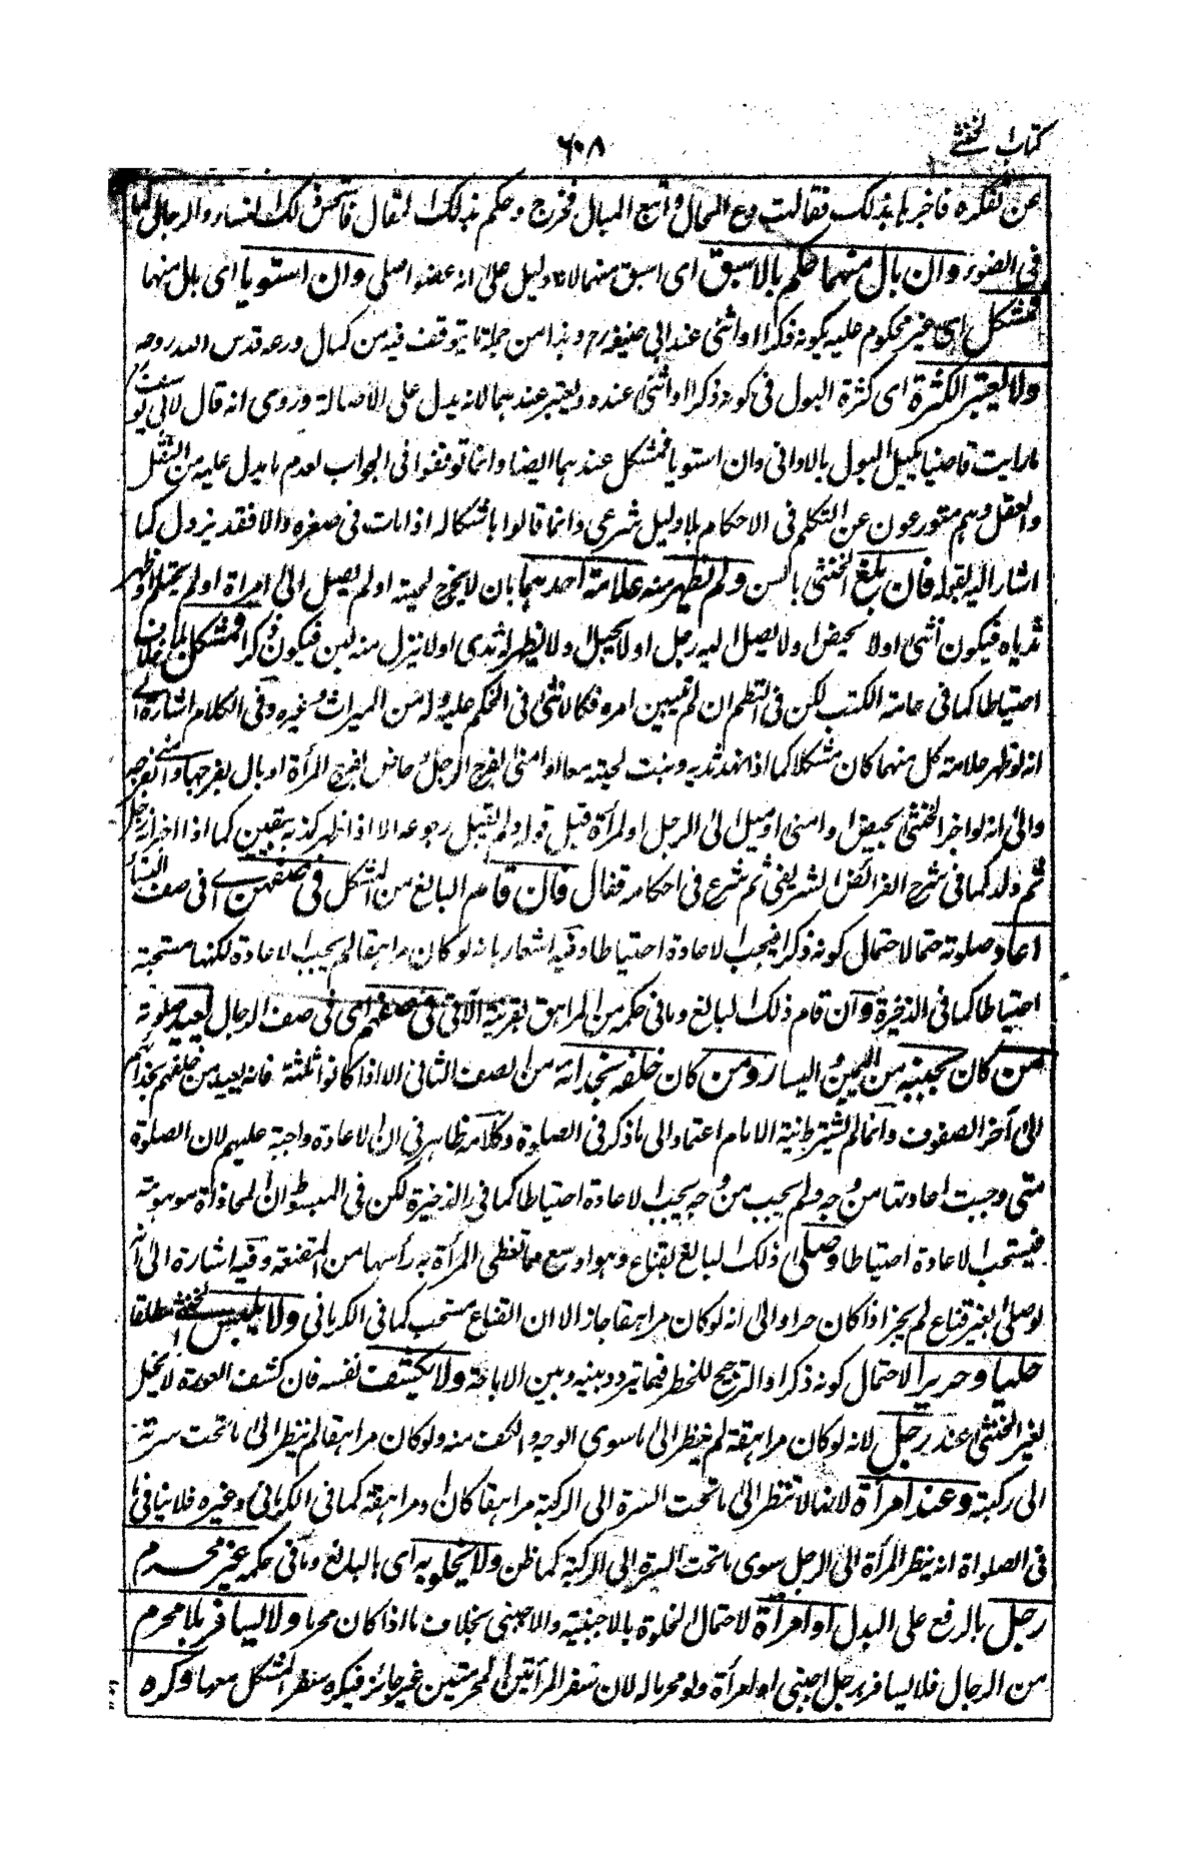 كتاب الخنثى
٦٠٨
عن تفكره فأخبرها بذلك فقالت دع الحال واتبع المبال فخرج وحكم بذلك المقال فاستحسن ذلك النساء والرجال كما
فى الضوء وان بال منهما حكم بالاسبق اى اسبق منهما لانه دليل على انه عضو اصلى وان استويا اى بال منهما
فمشكل اى غير محكوم عليه بكونه ذكرا او انثى عند ابى حنيفة رح وهذا من جملة ما يتوقف فيه من كمال ورعه قدس الله روحه
ولا يعتبر الكثرة اى كثرة البول فى كونه ذكرا او انثى عنده ويعتبر عندهما لانه يدل على الأصالة وروى انه قال لابى يوسف رح
ما رايت قاضيا يكيل البول بالاوانى وان استويا فمشكل عندهما ايضا وانما توقفوا فى الجواب لعدم ما يدل عليه من النقل
والعقل وهم متورعون عن التكلم فى الاحكام بلا دليل شرعى وانما قالوا باشكاله اذا مات فى صغره والا فقد يزول كما
اشار اليه بقوله فان بلغ الخنثى بالسن ولم تظهر منه علامة احدهما بان لا يخرج لحيته او لم يصل الى امراة او لم يحتلم او ظهر
ثدياه فيكون انثى او لا يحيض ولا يصل اليه رجل او لا يحبل ولا يظهر له ثدى او لا ينزل منه لبن فيكون ذكرا فمشكل
احتياطا كما فى عامة الكتب لكن فى النظم ان لم يتبين امره فكالانثى فى الحكم عليه وله من الميراث وغيره وفى الكلام اشارة الى
انه لو ظهر علامة كل منهما كان مشكلا كما اذا نهد ثديه ونبت لحيته معا او امنى بفرج الرجل وحاض بفرج المرأة او بال بفرجها وامنى بفرجه
والى انه لو اخبر الخنثى بحيض او امنى او ميل الى الرجل او المرأة قبل قوله ولم يقبل رجوعه الا اذا ظهر كذبه بيقين كما اذا اخبر انه رجل
ثم ولد كما فى شرح الفرائض الشريفى ثم شرع فى احكامه فقال فان قام البالغ من المشكل فى صفهن اى فى صف النساء
اعاد صلوته حتما لاحتمال كونه ذكرا فيجب الاعادة احتياطا وفيه اشعار بانه لو كان مراهقا لم يجب الاعادة لكنها مستحبة
احتياطا كما فى الذخيرة وان قام ذلك البالغ وما فى حكمه من المراهق بقرينة الآتى فى صفهم اى فى صف الرجال يعيد صلوته
من كان بجنبيه من اليمين واليسار ومن كان خلفه بحذائه من الصف الثانى الا اذا كانوا ثلثة فانه يعيد من خلفهم بحذائهم
الى آخر الصفوف وانما لم يشترط نية الامام اعتمادا الى ما ذكر فى الصلوة وكلامه ظاهر فى ان الاعادة واجبة عليهم لان الصلوة
متى وجبت اعادتها من وجه ولم يجب من وجه يجب الاعادة احتياطا كما فى الذخيرة لكن فى المبسوط ان المحاذاة موهومة
فيستحب الاعادة احتياطا وصلى ذلك البالغ بقناع وهو اوسع مما تغطى المرأة به رأسها من المقنعة وفيه اشارة الى انه
لو صلى بغير قناع لم يجز اذا كان حرا والى انه لو كان مراهقا جاز الا ان القناع مستحب كما فى الكرمانى ولا يلبس الخنثى مطلقا
حليا وحريرا لاحتمال كونه ذكرا والترجيح للحظر فيما تردد بينه وبين الاباحة ولا يكشف نفسه فان كشف العورة لا يحل
لغير الخنثى عند رجل لانه لو كان مراهقة لم ينظر الى ما سوى الوجه والكف منه ولو كان مراهقا لم ينظر الى ما تحت سرته
الى ركبته وعند امرأة لانها لا تنظر الى ما تحت السرة الى الركبة مراهقا كان او مراهقة كما فى الكرمانى وغيره فلا ينافى ما
فى الصلواة انه ينظر المرأة الى الرجل سوى ما تحت السرة الى الركبة كما ظن ولا يخلو به اى بالبالغ وما فى حكمه غير محرم
رجل بالرفع على البدل او امرأة لاحتمال الخلوة بالاجنبية والاجنبى بخلاف ما اذا كان محرما ولا يسافر بلا محرم
من الرجال فلا يسافر برجل اجنبى او امرأة ولو محرما له لان سفر المرأتين المحرمتين غير جائز فيكره سفر المشكل معها وكره